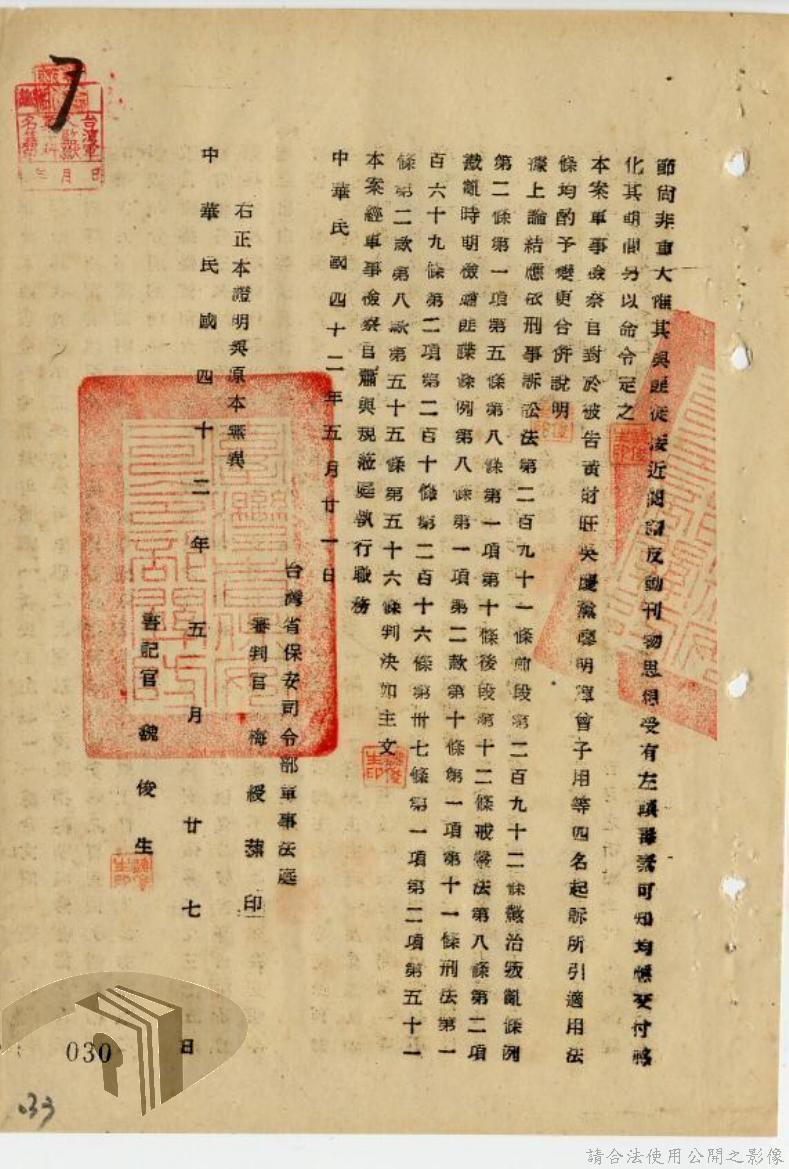 節尚非重大惟其與匪徒接近閱讀反動刊物思想受有左傾毒素可知均應交付感
化其期間另以命令定之
本案軍事檢察官對於被告黃財旺吳慶黨廖明澤曾子用等四名起訴所引適用法
條均酌予變更合併說明
據上論結應依刑事訴訟法第二百九十一條前段第二百九十二條懲治叛亂條例
第二條第一項第五條第八條第一項第十條後段第十二條戒嚴法第八條第二項
戡亂時期檢肅匪諜條例第八條第一項第二款第十條第一項第十一條刑法第一
百六十九條第二項第二百十條第二百十六條第卅七條第一項第二項第五十一
條第二款第八款第五十五條第五十六條判決如主文
本案經軍事檢察官蕭與規蒞庭執行職務
中華民國四十二年五月廿一日
台灣省保安司令部軍事法庭
審判官 梅綬蓀 印
右正本證明與原本無異
書記官 魏俊生
中華民國四十二年五月廿七日
7
030
033
請合法使用公開之影像